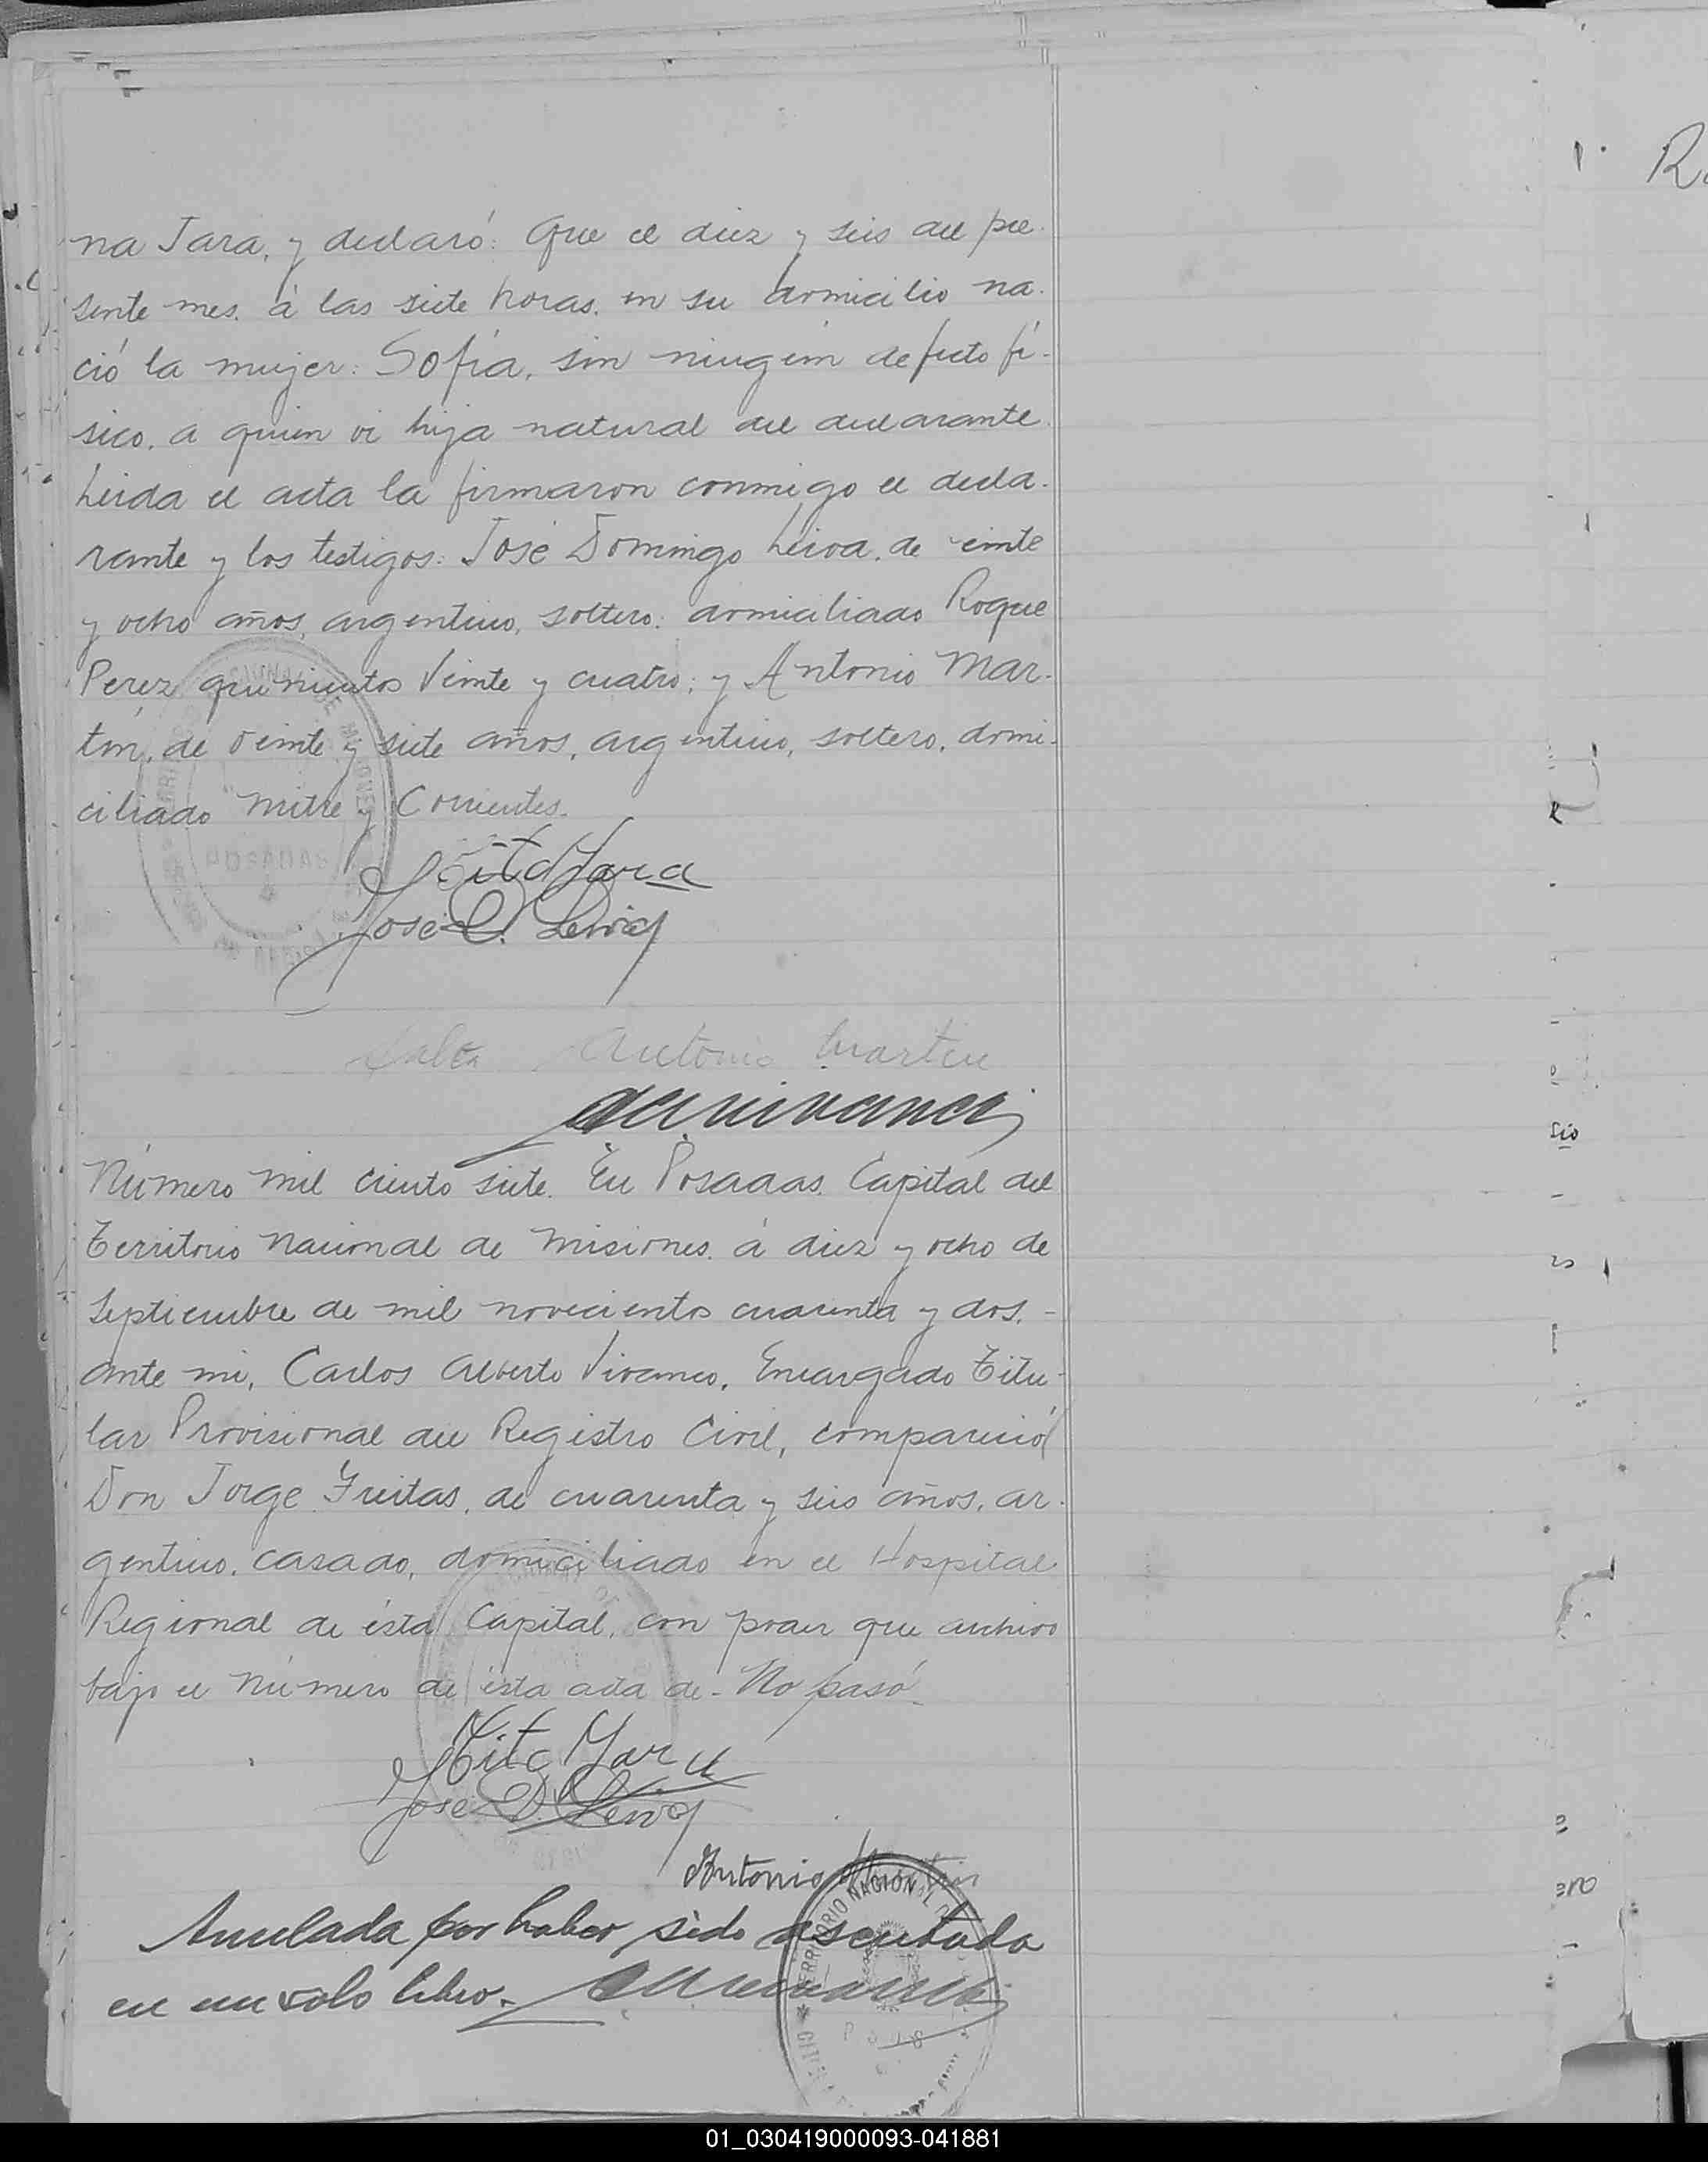 na Jara, y declaró: Que el diez y seis del pre-
sente mes, á las siete horas, en su domicilio na-
ció la mujer: Sofía, sin ningún defecto fí-
sico, a quien vi hija natural del declarante.
Leida el acta la firmaron conmigo el decla-
rante y los testigos: José Domingo Leiva, de veinte
y ocho años, argentino, soltero, domiciliado Roque
Perez quinientos veinte y cuatro; y Antonio Mar-
tín, de veinte y siete años, argentino, soltero, domi-
ciliado Mitre y Corrientes.
Tito Jara
José D. Leiva
Antonio Martin
Número mil ciento siete. En Posadas, Capital del
Territorio Nacional de Misiones, á diez y ocho de
Septiembre de mil novecientos cuarenta y dos,
ante mi, Carlos Alberto Vivanco, Encargado Titu-
lar Provisional del Registro Civil, compareció
Don Jorge Freitas, de cuarenta y seis años, ar-
gentino, casado, domiciliado en el Hospital
Regional de ésta Capital, con poder que archivo
bajo el número de ésta acta de - No pasó -
Tito Jara
José D. Leiva
Antonio
TERRITORIO NACIONAL
Anulada por haber sido asentada
en un solo libro.
R
01_030419000093-041881